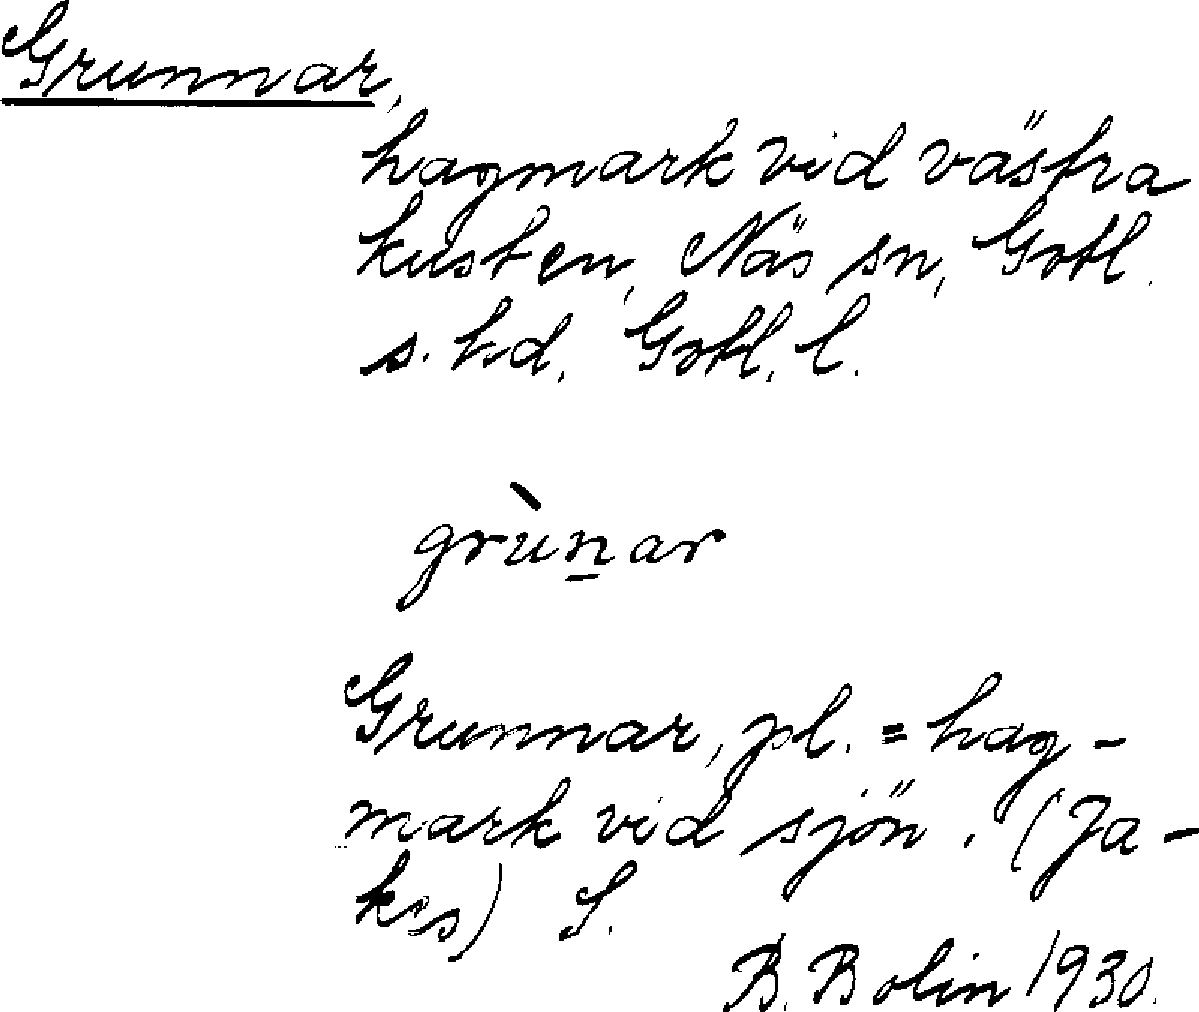 Grunnar,
hagmark vid västra
kusten, Näs sn, Gotl.
s. hd, Gotl. l.
grùn̲ar
Grunnar, pl. = hag-
mark vid sjön. (Ja-
kes) S.
B. Bolin 1930.